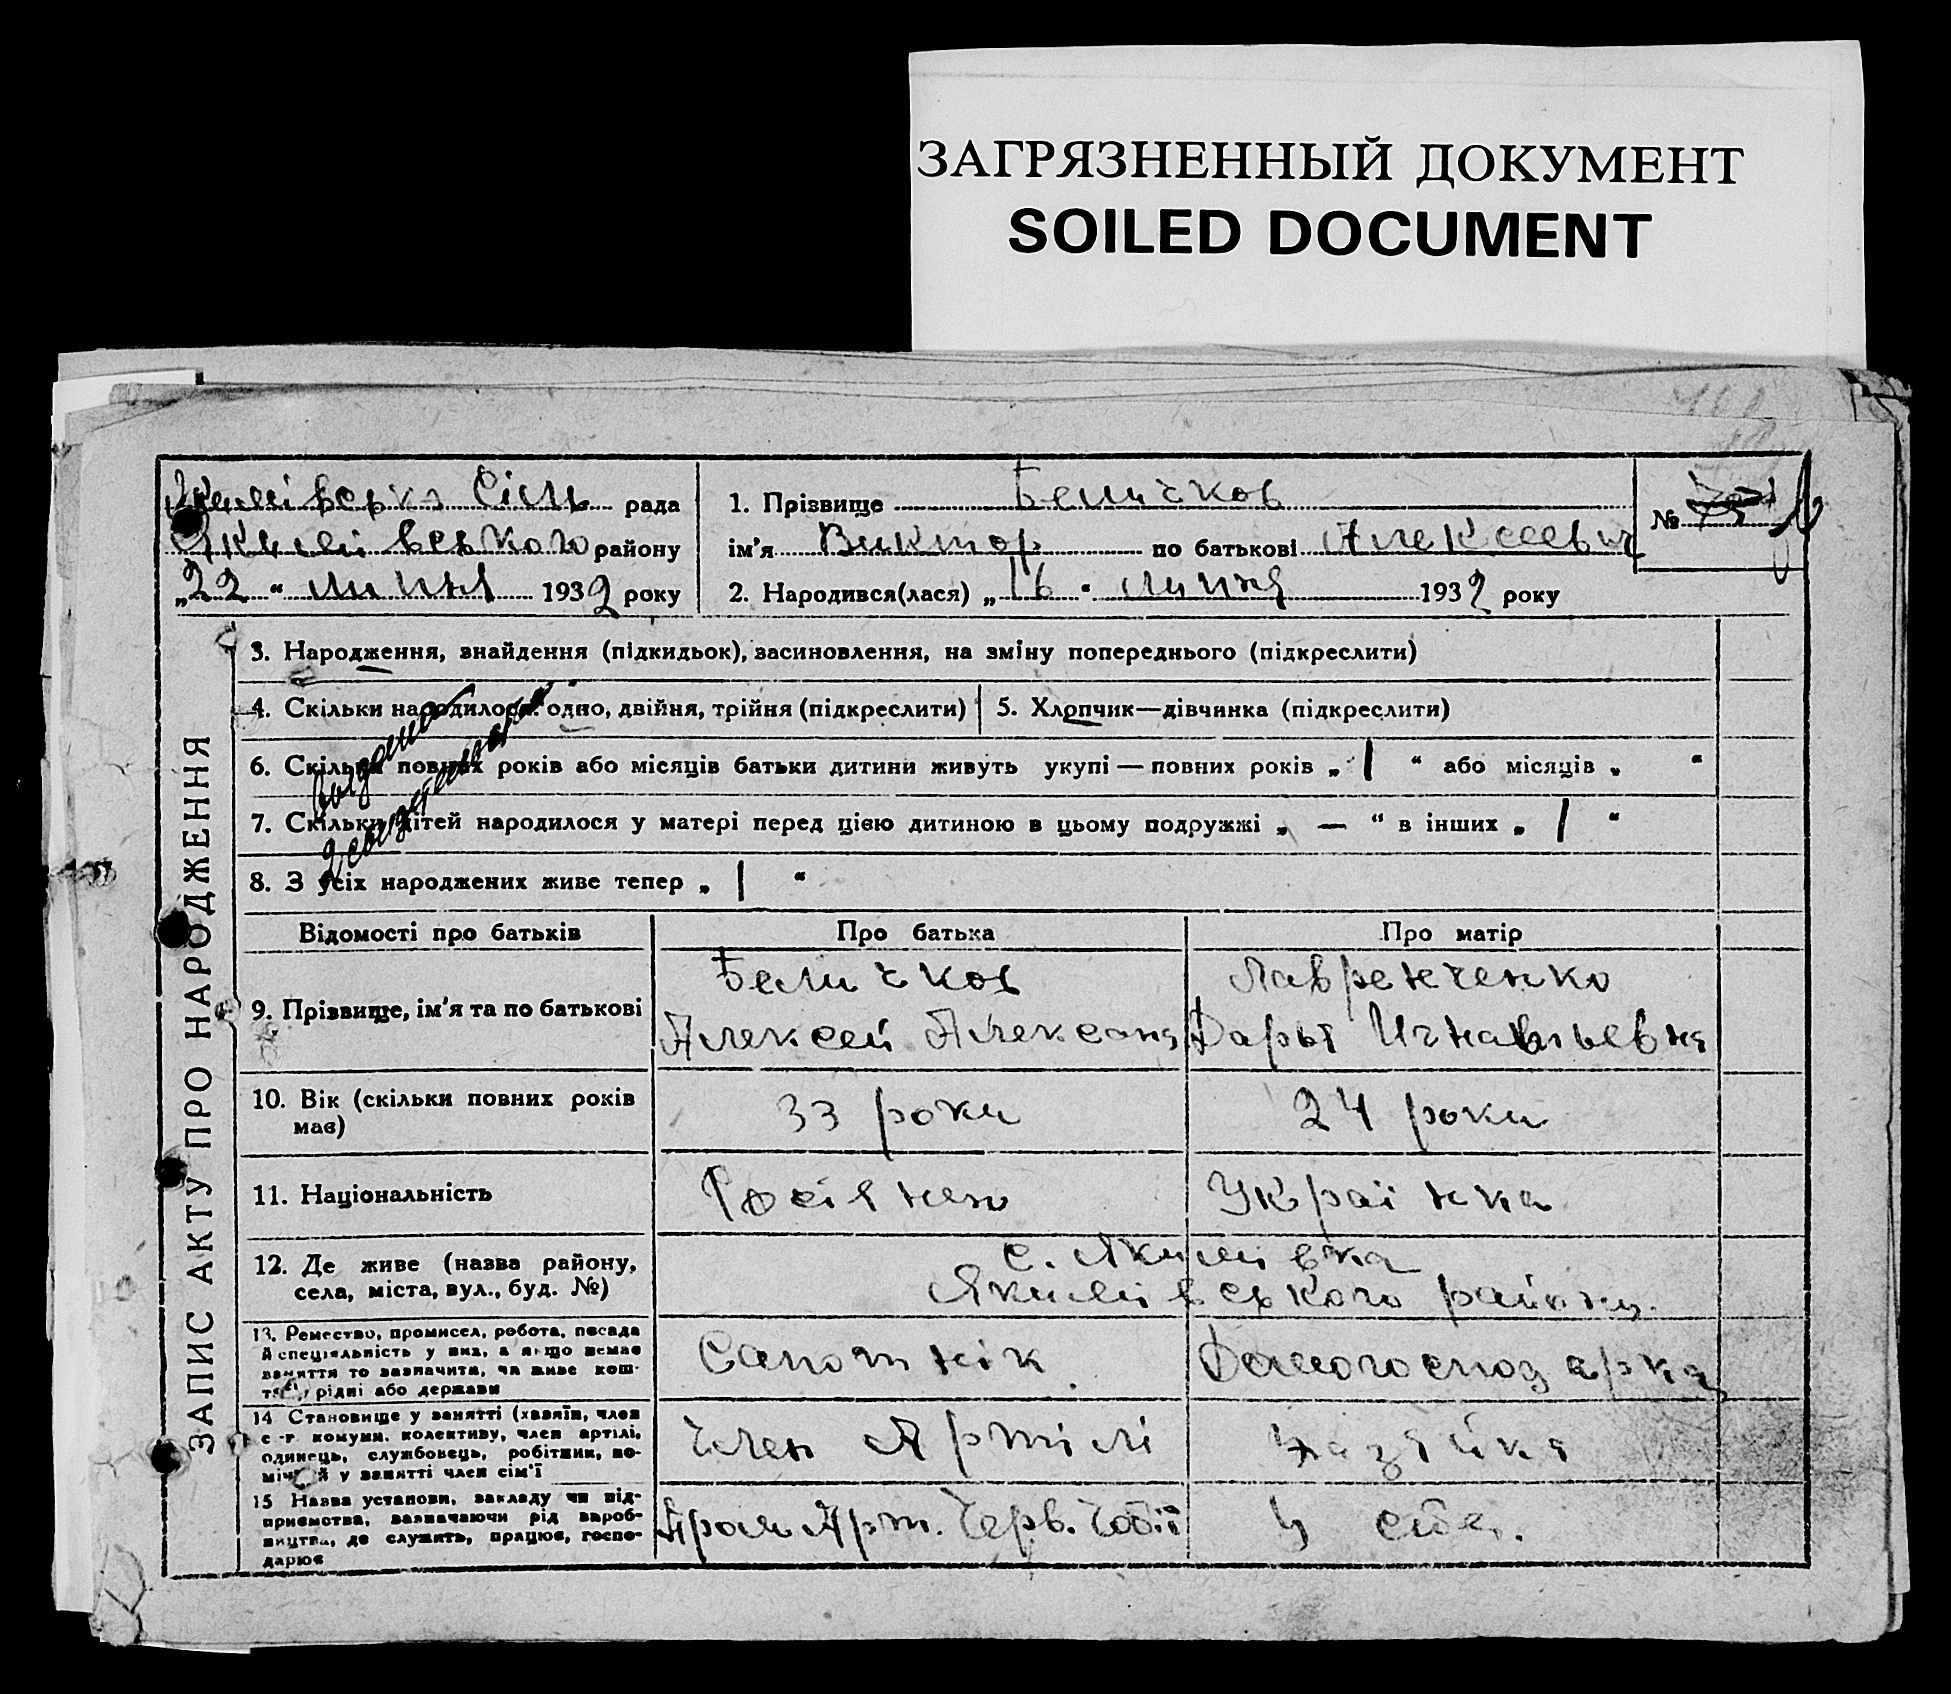 ЗАГРЯЗНЕННЫЙ ДОКУМЕНТ
SOILED DOCUMENT
ЗАПИС АКТУ ПРО НАРОДЖЕННЯ
Сіль рада
Якимівського району
„22“ липня 1932 року
1. Прізвище Беличков
ім'я Виктор по батькові Алексеевич
№
2. Народився(лася) „16“ липня 1932 року
3. Народження, знайдення (підкидьок), засиновлення, на зміну попереднього (підкреслити)
4. Скільки народилося: одно, двійня, трійня (підкреслити)
5. Хлопчик—дівчинка (підкреслити)
6. Скільки повних років або місяців батьки дитини живуть укупі — повних років „1“ або місяців „ “
7. Скільки дітей народилося у матері перед цією дитиною в цьому подружжі „—“ в інших „1“
8. З усіх народжених живе тепер „1“
Відомості про батьків Про батька Про матір
9. Прізвище, ім'я та по батькові
Беличков
Алексей Александ
Лавренченко
Дарья Игнатьевня
10. Вік (скільки повних років має)
33 роки
24 роки
11. Національність
Українка
12. Де живе (назва району,
села, міста, вул., буд. №)
с. Якимівка
Якимівського району.
13. Ремество, промисел, робота, посада
й спеціяльність у них, а якщо немає
заняття то зазначити, чи живе кош-
рідні або держави
Сапотнік
Домогосподарка
14 Становище у занятті (хазяїн, член
с.-г. комуни, колективу, член артілі,
одинець, службовець, робітник, по-
у занятті член сім'ї
Член Артілі
Хазяйкя
15 Назва установи, закладу чи під-
приємства, зазначаючи рід вироб-
ництва, де служить, працює, госпо-
дарює
Пром Арт. Черв.
У себе.